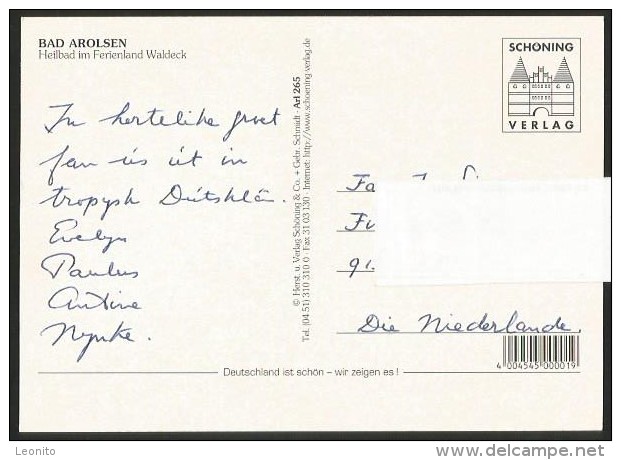 BAD AROLSEN
Heilbad im Ferienland Waldeck
In hertelike groet
fan ús út in
tropysk Dútsklân.
Evelyn
Paulus
Antine
Nynke.
© Herst. u. Verlag Schöning & Co. + Gebr. Schmidt · Arl 265
Tel. (04 51) 310 310 0 · Fax 31 03 130 · Internet: http://www.schoening-verlag.de
SCHÖNING
VERLAG
Fa
Die Niederlande.
4 004545 000019
Deutschland ist schön – wir zeigen es !
Leonito
www.delcampe.net